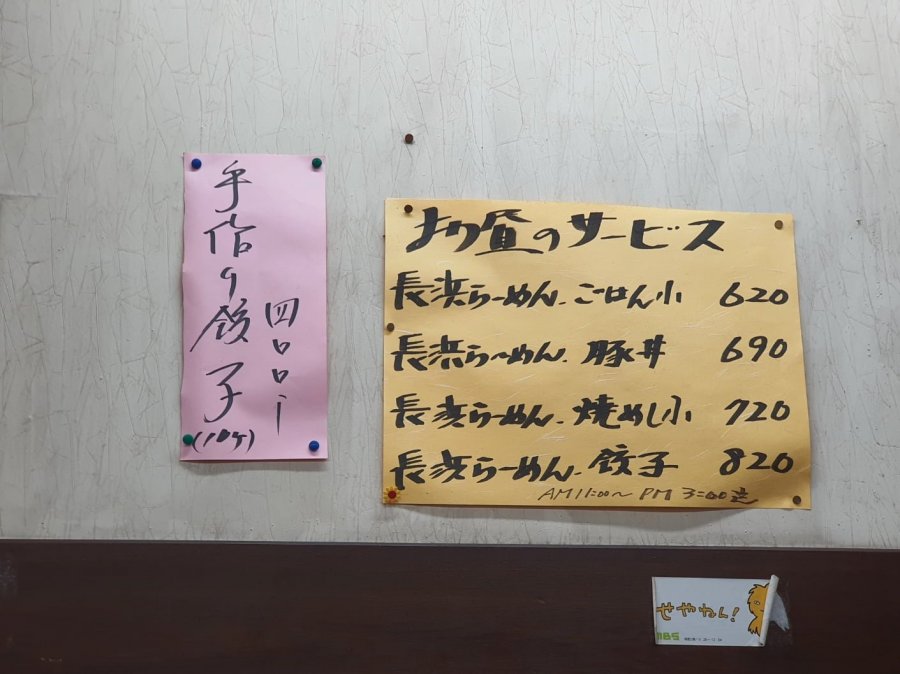 手作り餃子
四〇〇ー
(10ケ)
お昼のサービス
長浜らーめん、ごはん小 620
長浜らーめん、豚丼 690
長浜らーめん、焼めし小 720
長浜らーめん、餃子 820
AM11:00〜PM 3:00迄
せやねん!
MBS